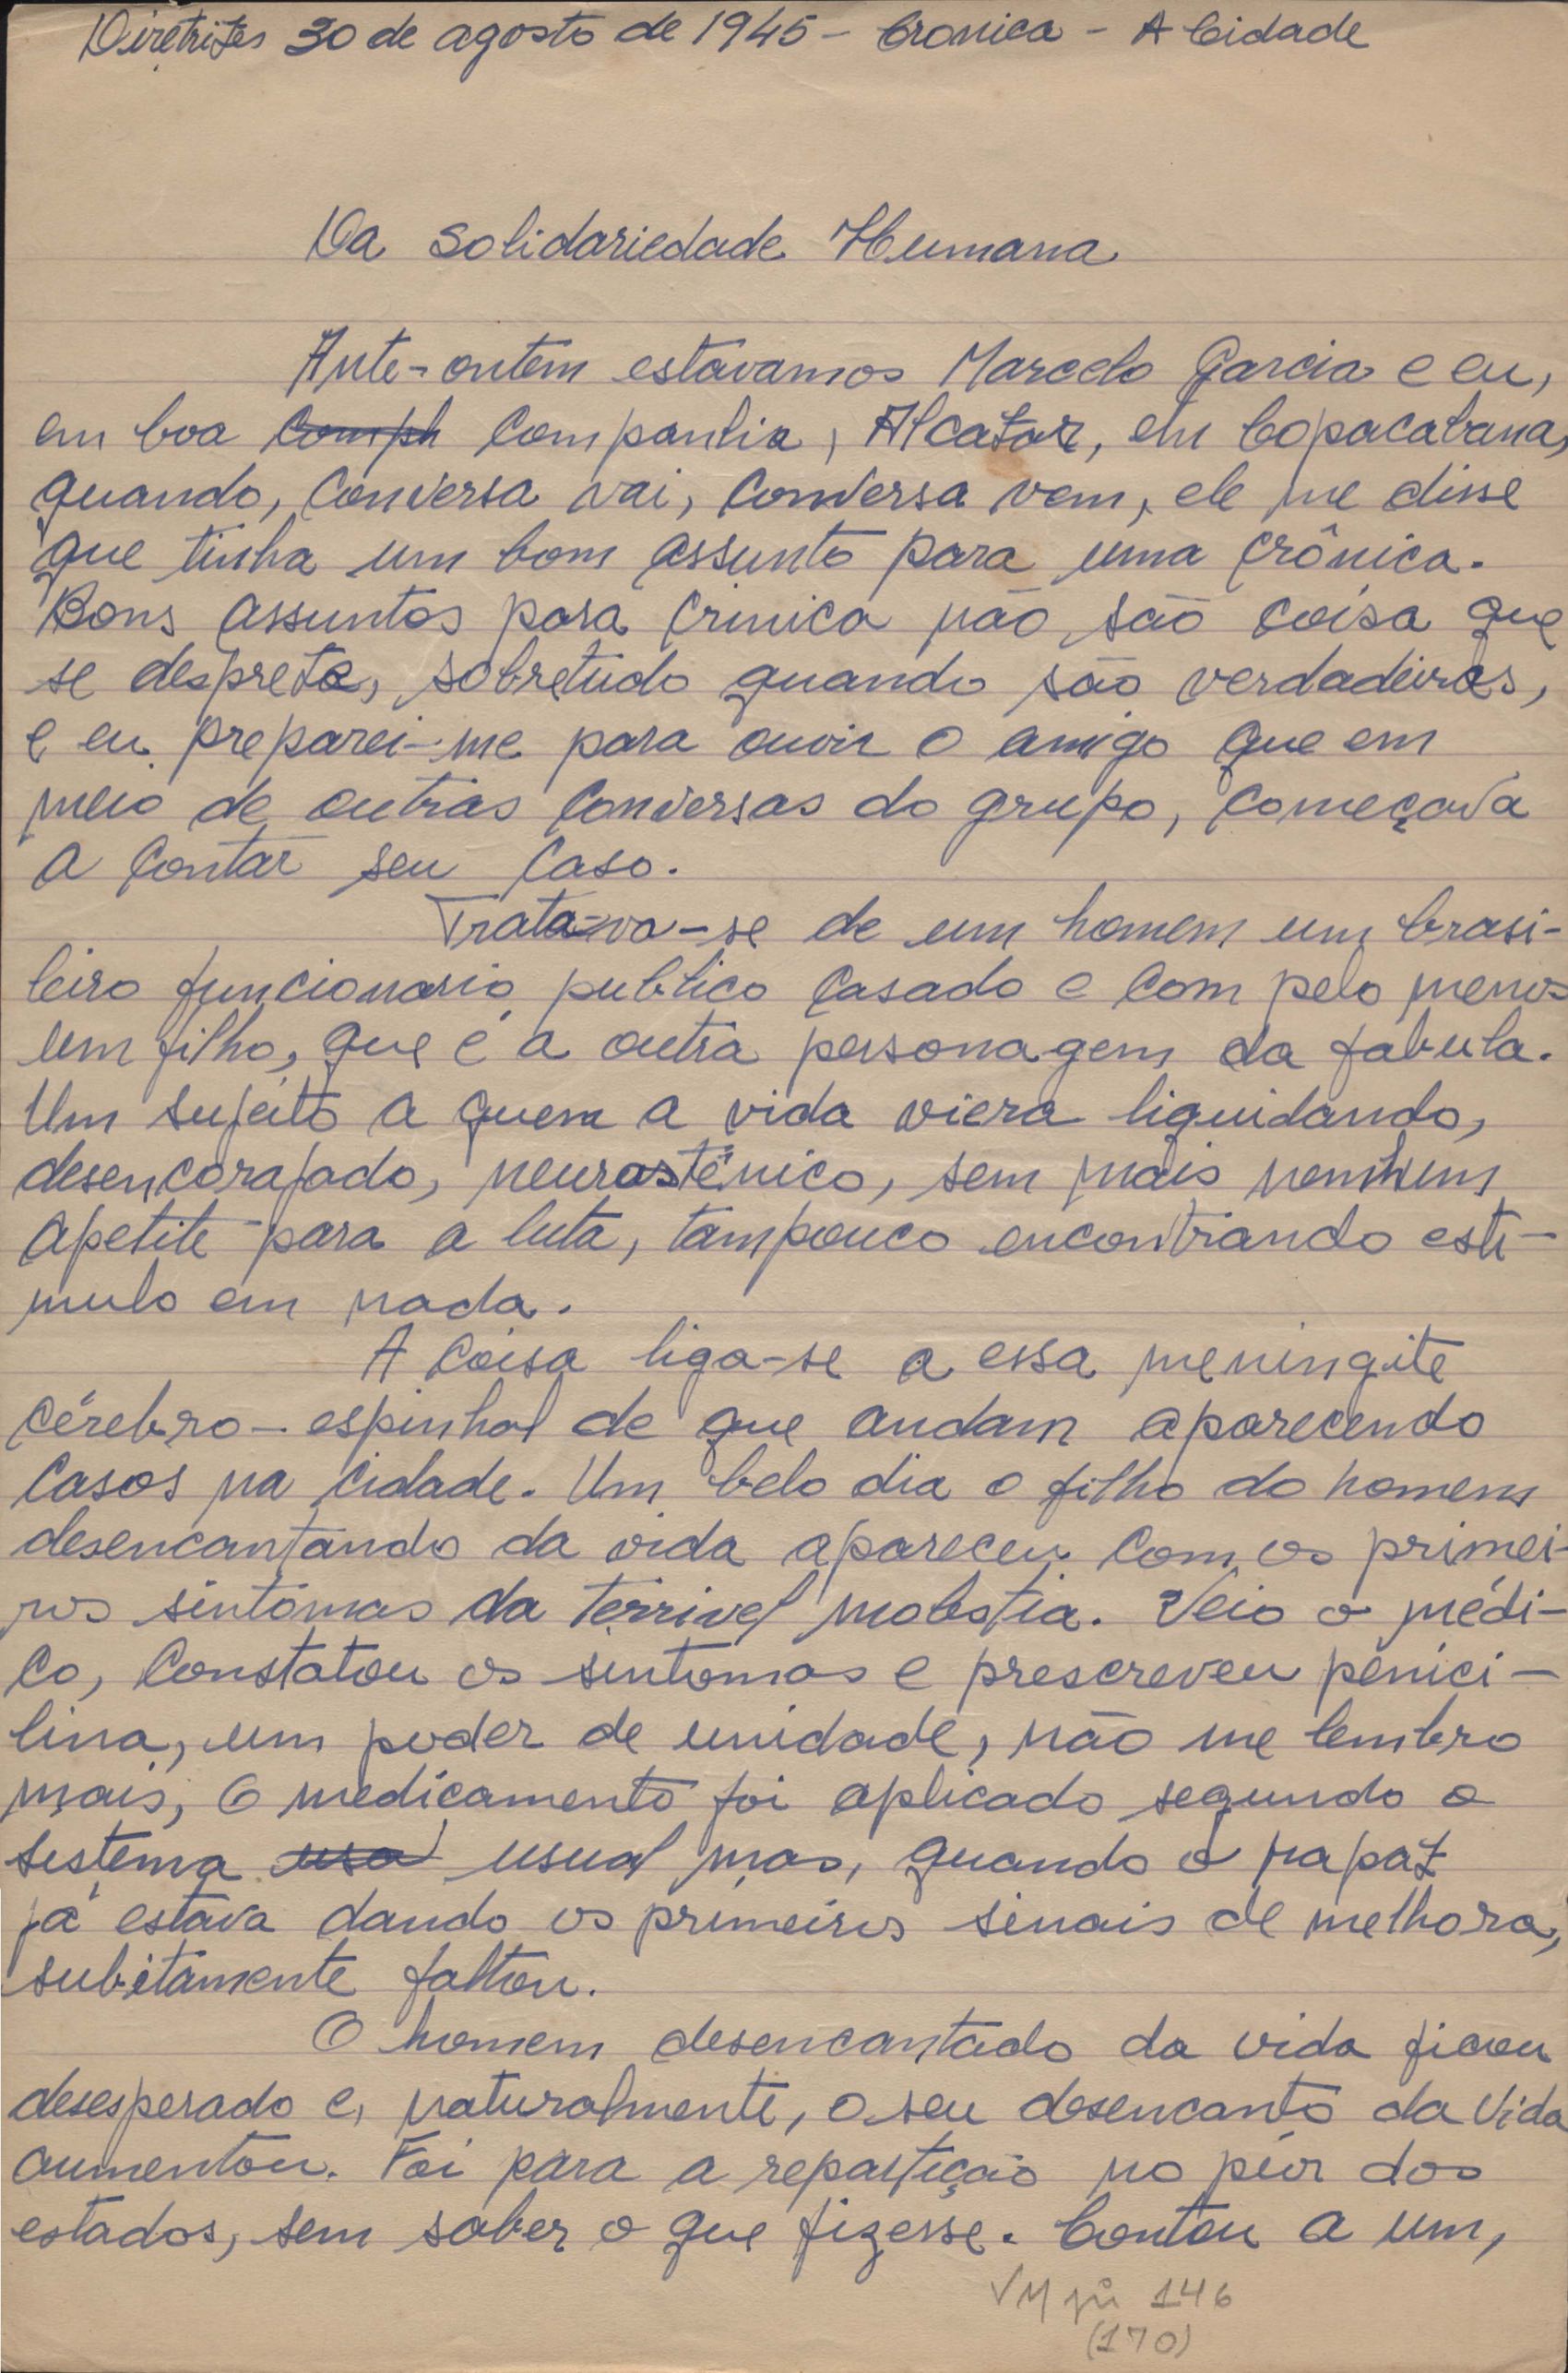 Diretrizes 30 de agosto de 1945 - Cronica - A Cidade
Da Solidariedade Humana
Ante-ontem estavamos Marcelo Garcia e eu,
em boa comph companhia, Alcazar, em Copacabana,
quando, conversa vai, conversa vem, ele me disse
que tinha um bom assunto para uma crônica.
Bons assuntos para crinica não são coisa que
se despreze, sobretudo quando são verdadeiras,
e eu preparei-me para ouvir o amigo que em
meio de outras conversas do grupo, começava
a contar seu caso.
Trata-va-se de um homem um brasi-
leiro funcionario publico casado e com pelo menos
um filho, que é a outra personagem da fabula.
Um sujeito a quem a vida viera liquidando,
desencorajado, neurastênico, sem mais nenhum
apetite para a luta, tampouco encontrando esti-
mulo em nada.
A coisa liga-se a essa meningite
cérebro-espinhal de que andam aparecendo
casos na cidade. Um belo dia o filho do homem
desencantando da vida apareceu com os primei-
ros sintomas da terrivel molestia. Veio o médi-
co, constatou os sintomas e prescreveu penici-
lina, um poder de unidade, não me lembro
mais, O medicamento foi aplicado segundo o
sistema usa usual mas, quando o rapaz
já estava dando os primeiros sinais de melhora,
subitamente faltou.
O homem desencantado da vida ficou
desesperado e, naturalmente, o seu desencanto da vida
aumentou. Foi para a repartição no peor dos
estados, sem saber o que fizesse. Contou a um,
146
(170)